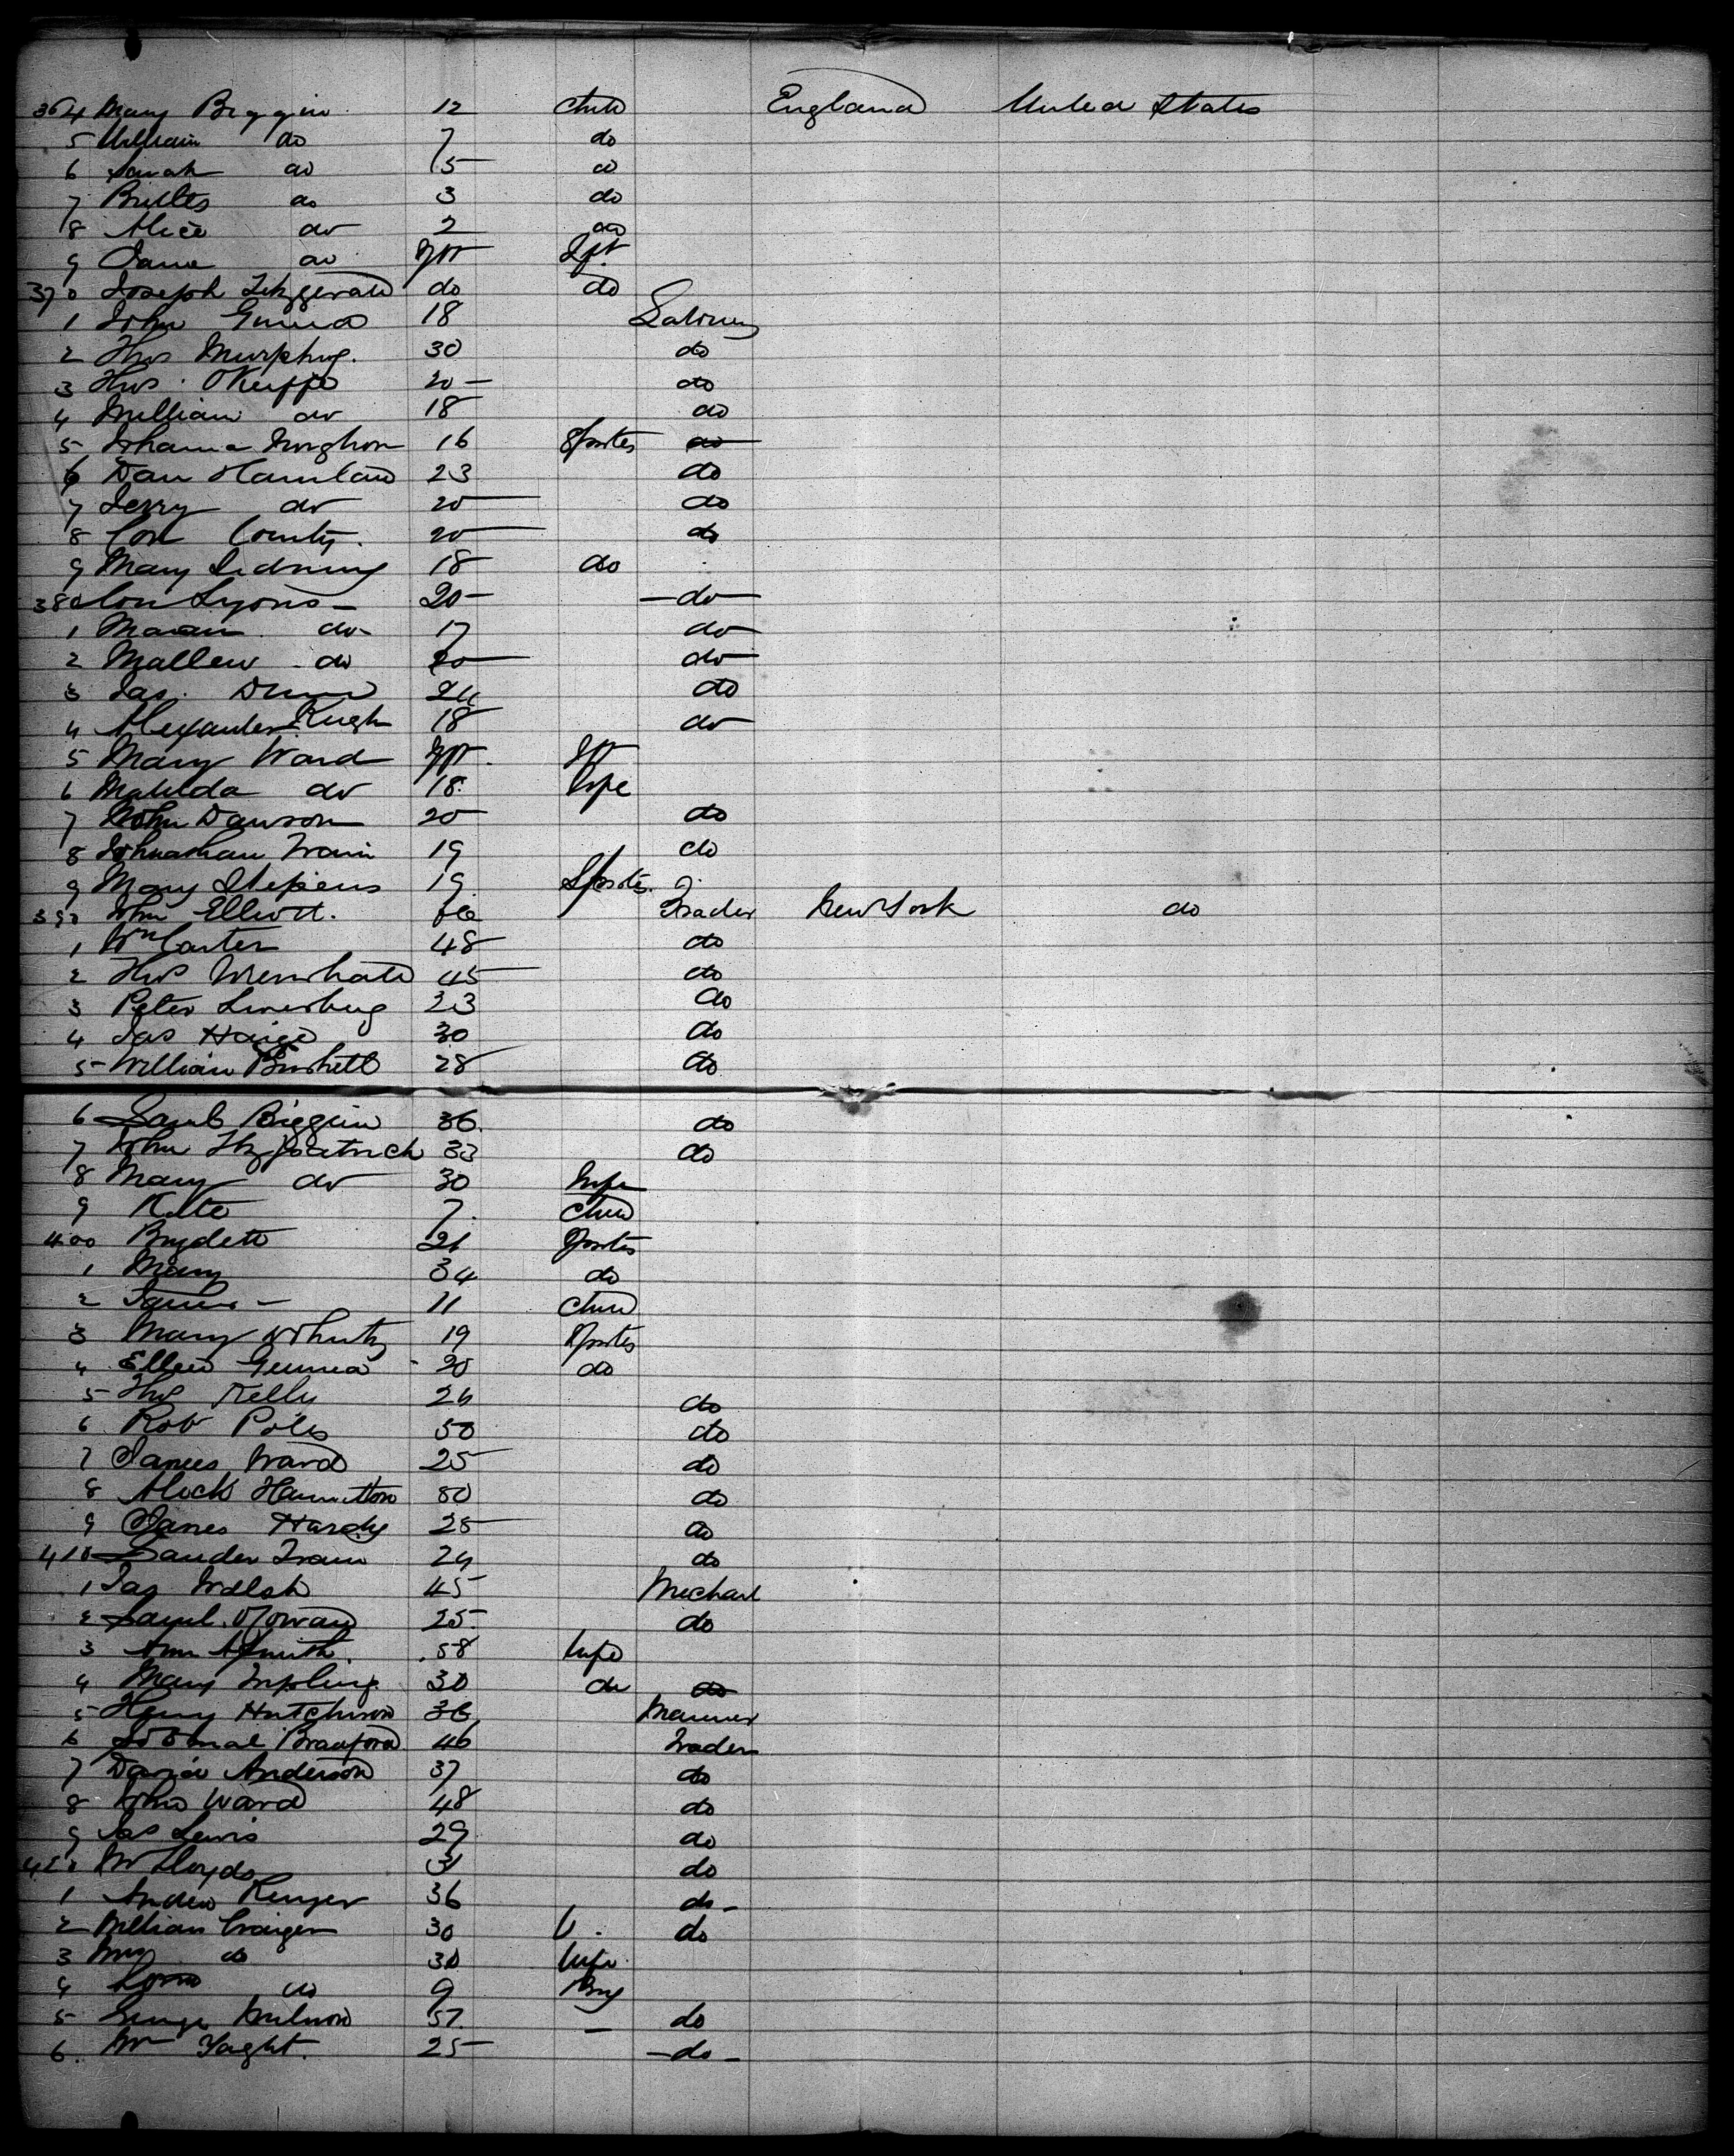 364 Mary Biggin 12 Child England United States
5 William do 7 do
6 Sarah do 5 do
7 do 3 do
8 Alice do 2 do
9 Jane do Inft Inft
370 Joseph Fitzgerald do do
1 John 18 Labourer
2 Thos Murphy. 30 do
3 Thos. OKeiffe 20 do
4 William do 18 do
5 Johanna 16 Spstes do
6 Dan 23 do
7 Jerry do 20 do
8 Con County. 20 do
9 Mary 18 do
380 Con Lyons 20 do
1 do 17 do
2 do 20 do
3 Jas. 24 do
4 Alexander 18 do
5 Mary Ward Inft. Inft
6 Matilda do 18 Wife
7 John Dawson 20 do
8 Johnathan Train 19 do
9 Mary Stepens 19 Spstes.
390 John Elliott. Trader New York do
1 Wm Carter 48 do
2 Thos 45 do
3 Peter 23 do
4 Jas Haige 30 do
5 William 28 do
6 Saml Biggin 36. do
7 John Fitzpatrick 33 do
8 Mary do 30 Wife
9 Kate 7. Child
400 Brydett 21 Spstes
1 Mary 34 do
2 11 Child
3 Mary 19 Spstes
4 Ellen 20 do
5 Thos Kelly 24 do
6 Rob Poles 50 do
7 James Ward 25 do
8 Alick Hamilton 50 do
9 James Hardy 25 do
410 Sander Train 24 do
1 Jas Walsh 45 Mechant
2 Saml. 25 do
3 Ann Smith. 58 Wife
4 Mary 30 do do
5 Henry Hutchison 36 Mariner
6 Bradford 46 Trader
7 David Anderson 37 do
8 John Ward 48 do
9 Jas Lewis 29 do
420 Wm Lloyds 31 do
1 Andrew 36 do
2 William Craigen 30 do
3 Mrs do 30 Wife
4 do 9 Boy
5 George 57. do
6. Wm 25 do